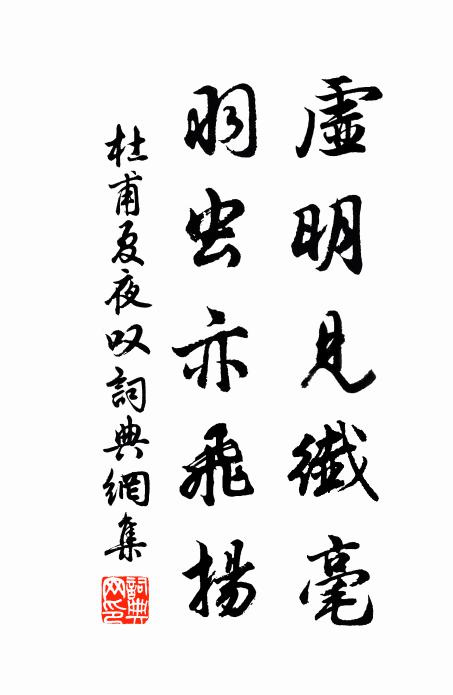 虛明見纖毫
羽虫亦飛揚
杜甫夏夜叹詞典網集
詞典網印